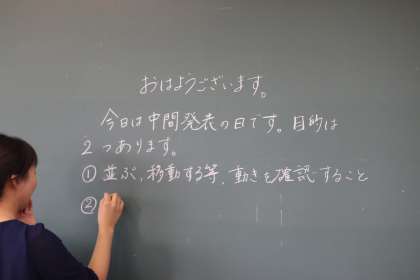 おはようございます。
今日は中間発表の日です。目的は
2つあります。
①並ぶ、移動する等、動きを確認すること
②